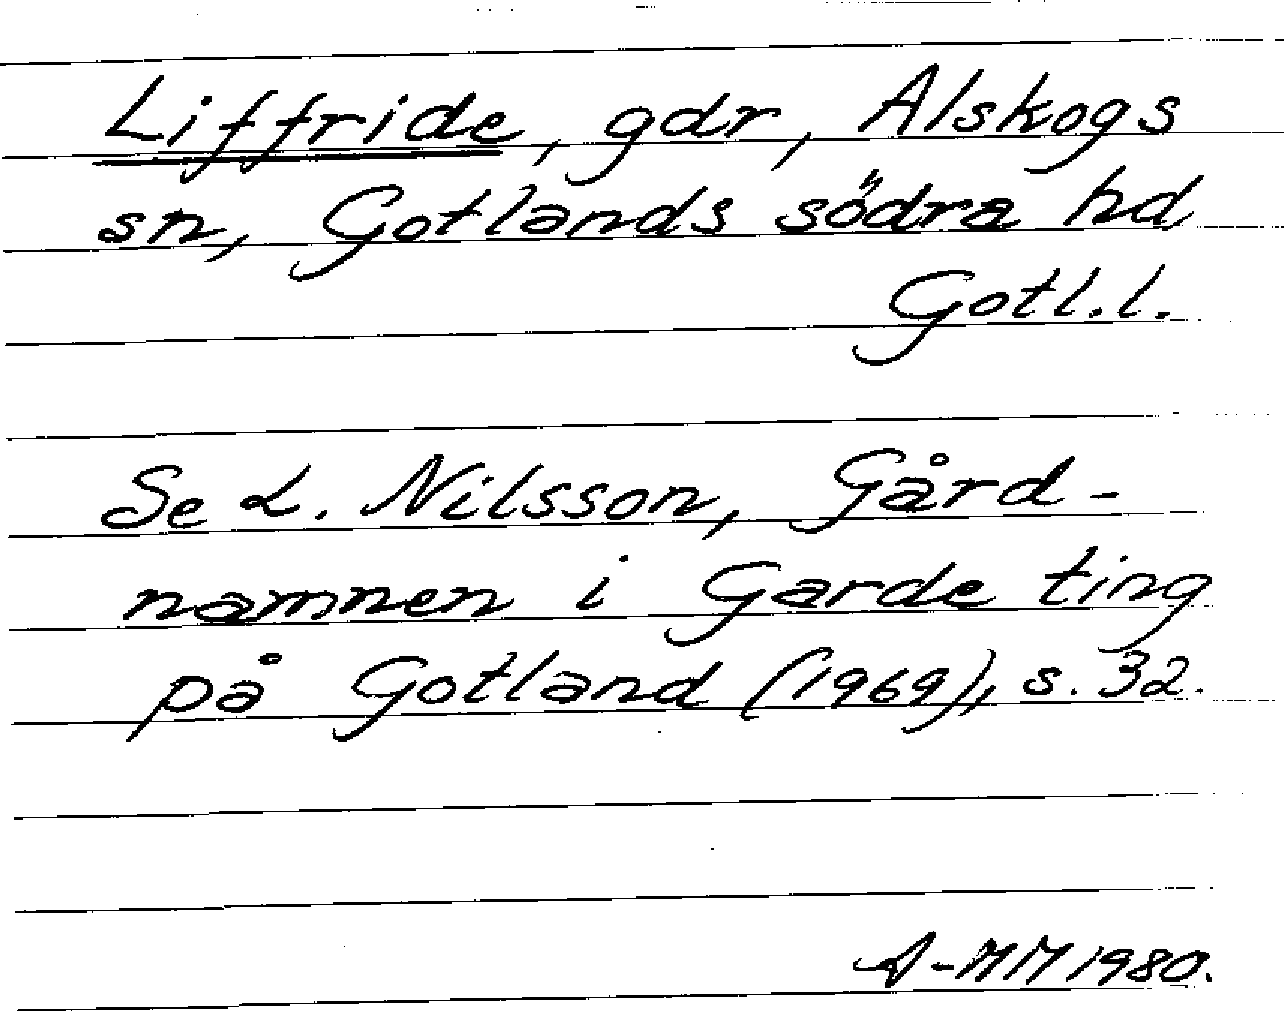 Liffride, gdr, Alskogs
sn, Gotlands södra hd
Gotl.l.
Se L. Nilsson, Gård-
namnen i Garde ting
på Gotland (1969), s. 32.
A-MM 1980.